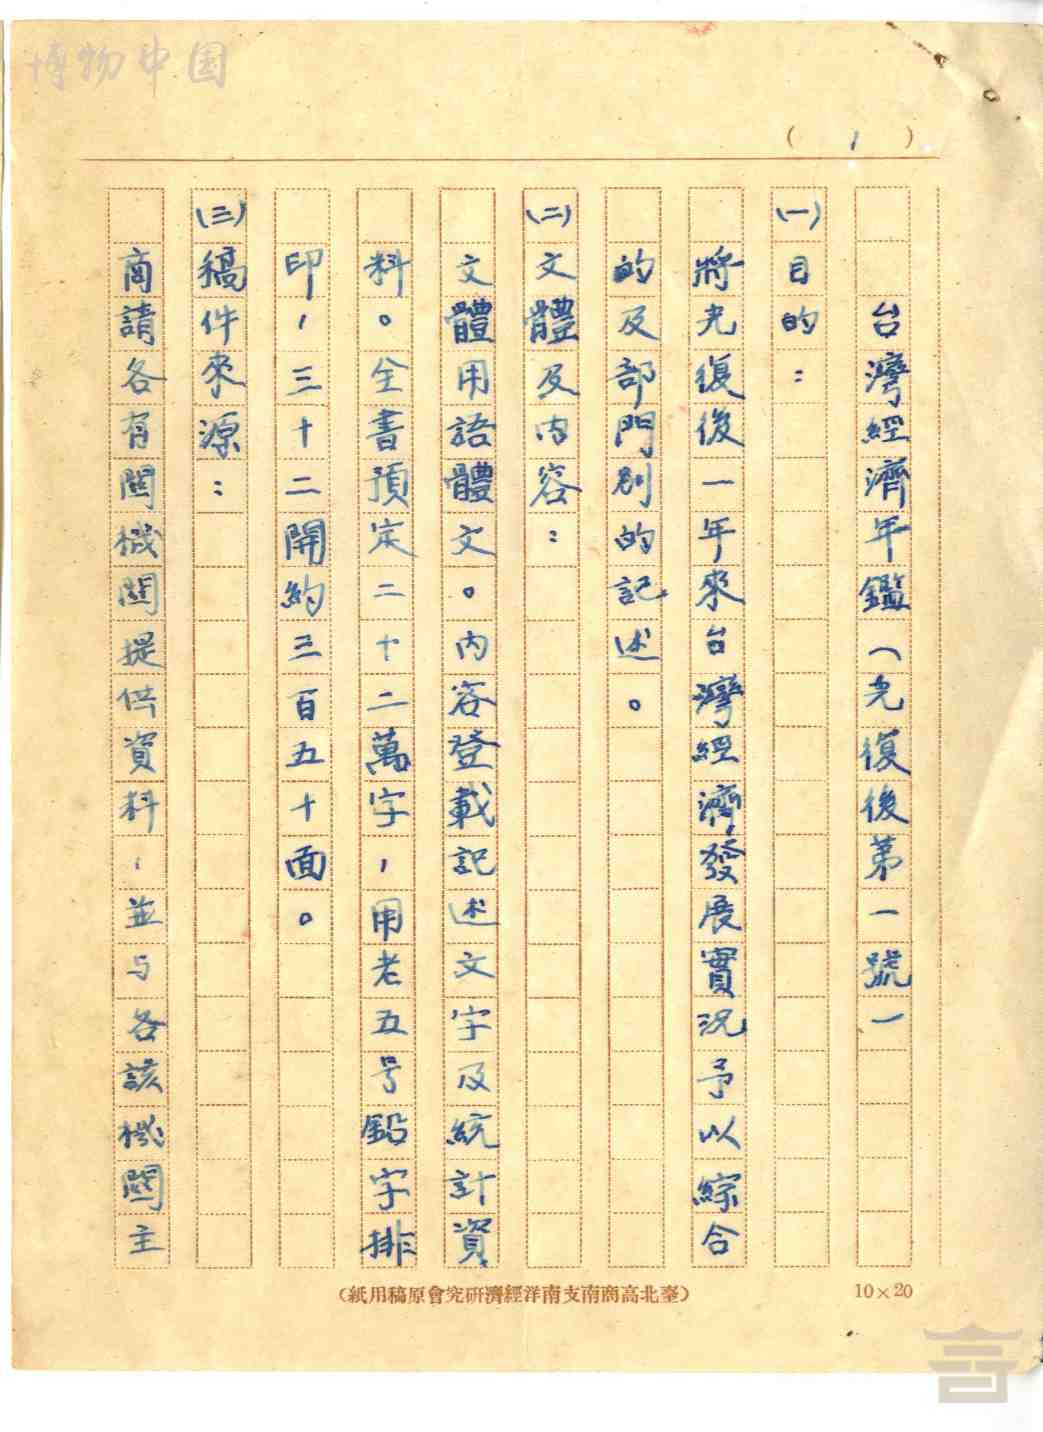 博物中国
( 1 )
台灣經濟年鑑（光復後第一號）
(一)目的：
將光復後一年來台灣經濟發展實況予以綜合
的及部門別的記述。
(二)文體及內容：
文體用語體文。內容登載記述文字及統計資
料。全書預定二十二萬字，用老五号鉛字排
印，三十二開約三百五十面。
(三)稿件來源：
商請各有關機關提供資料，並与各該機關主
10×20
(臺北高商南支南洋經濟研究會原稿用紙)